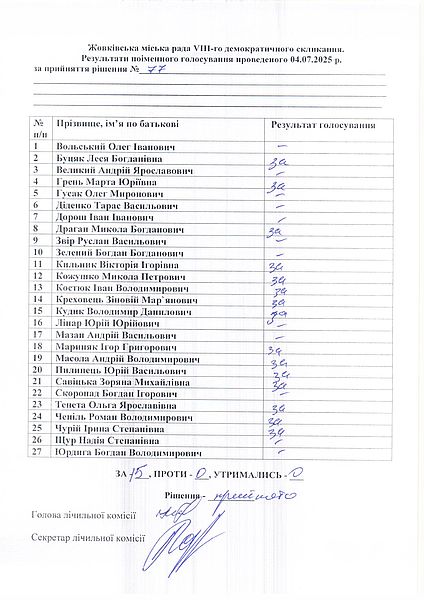 Жовківська міська рада VIII-го демократичного скликання.
Результати поіменного голосування проведеного 04.07.2025 р.
за прийняття рішення № 77
№ п/п Прізвище, ім’я по батькові Результат голосування
1 Вольський Олег Іванович –
2 Буцяк Леся Богданівна за
3 Великий Андрій Ярославович –
4 Грень Марта Юріївна за
5 Гусак Олег Миронович –
6 Діденко Тарас Васильович –
7 Дорош Іван Іванович –
8 Драган Микола Богданович за
9 Звір Руслан Васильович –
10 Зелений Богдан Богданович –
11 Кильник Вікторія Ігорівна за
12 Кожушко Микола Петрович за
13 Костюк Іван Володимирович за
14 Креховець Зіновій Мар`янович за
15 Кудик Володимир Данилович за
16 Лінар Юрій Юрійович –
17 Мазан Андрій Васильович –
18 Мариняк Ігор Григорович за
19 Масола Андрій Володимирович за
20 Пилипець Юрій Васильович за
21 Савіцька Зоряна Михайлівна за
22 Скоропад Богдан Ігорович –
23 Тепета Ольга Ярославівна за
24 Чепіль Роман Володимирович за
25 Чурій Ірина Степанівна за
26 Щур Надія Степанівна –
27 Юрдига Богдан Володимирович –
ЗА 15, ПРОТИ - 0, УТРИМАЛИСЬ - 0
Рішення - прийнято
Голова лічильної комісії
Секретар лічильної комісії